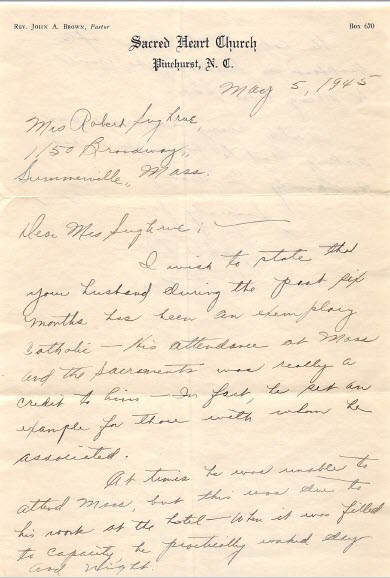 REV. JOHN A. BROWN, Pastor
Box 670
Sacred Heart Church
Pinehurst, N. C.
May 5, 1945
Mrs Robert Sughrue,
1150 Broadway,
Summerville, Mass.
Dear Mrs Sughrue; —
I wish to state that
your husband during the past six
months has been an exemplary
Catholic – his attendance at Mass
and the Sacraments was really a
credit to him – In fact, he set an
example for those with whom he
associated.
At times he was unable to
attend Mass, but this was due to
his work at the hotel – When it was filled
to capacity, he practically worked day
and night